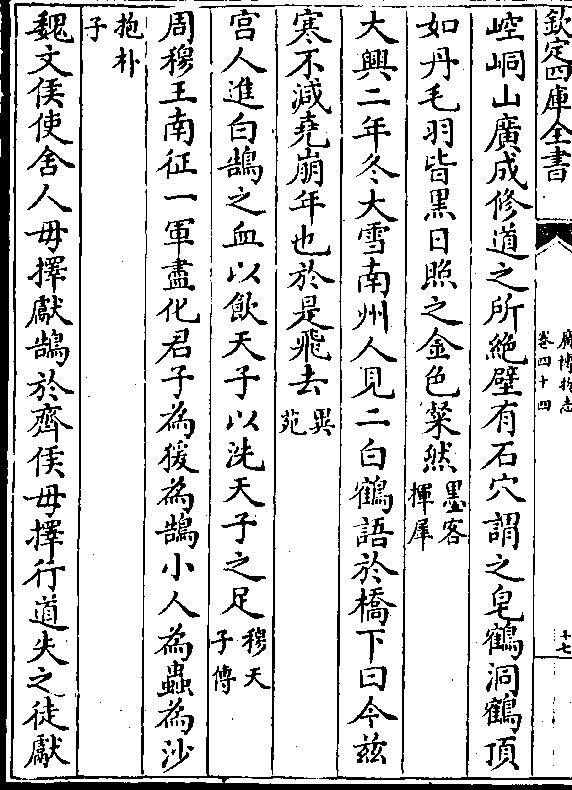 欽定四庫全書
廣博物志
卷四十四
十七
崆峒山廣成修道之所絶壁有石穴謂之皂鶴洞鶴頂
如丹毛羽皆黑日照之金色粲然墨客揮犀
大興二年冬大雪南州人見二白鶴語於橋下曰今兹
寒不減堯崩年也於是飛去異苑
宫人進白鵠之血以飲天子以洗天子之足穆天子傳
周穆王南征一軍盡化君子為猨為鵠小人為蟲為沙
抱朴子
魏文侯使舍人毋擇獻鵠於齊侯毋擇行道失之徒獻